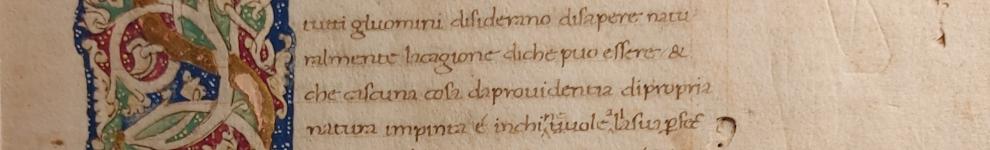 tutti gluomini disiderano disapere natu
ralmente lacagione diche puo essere &
che ciascuna cosa daprouidentia dipropria
natura impinta é inchi